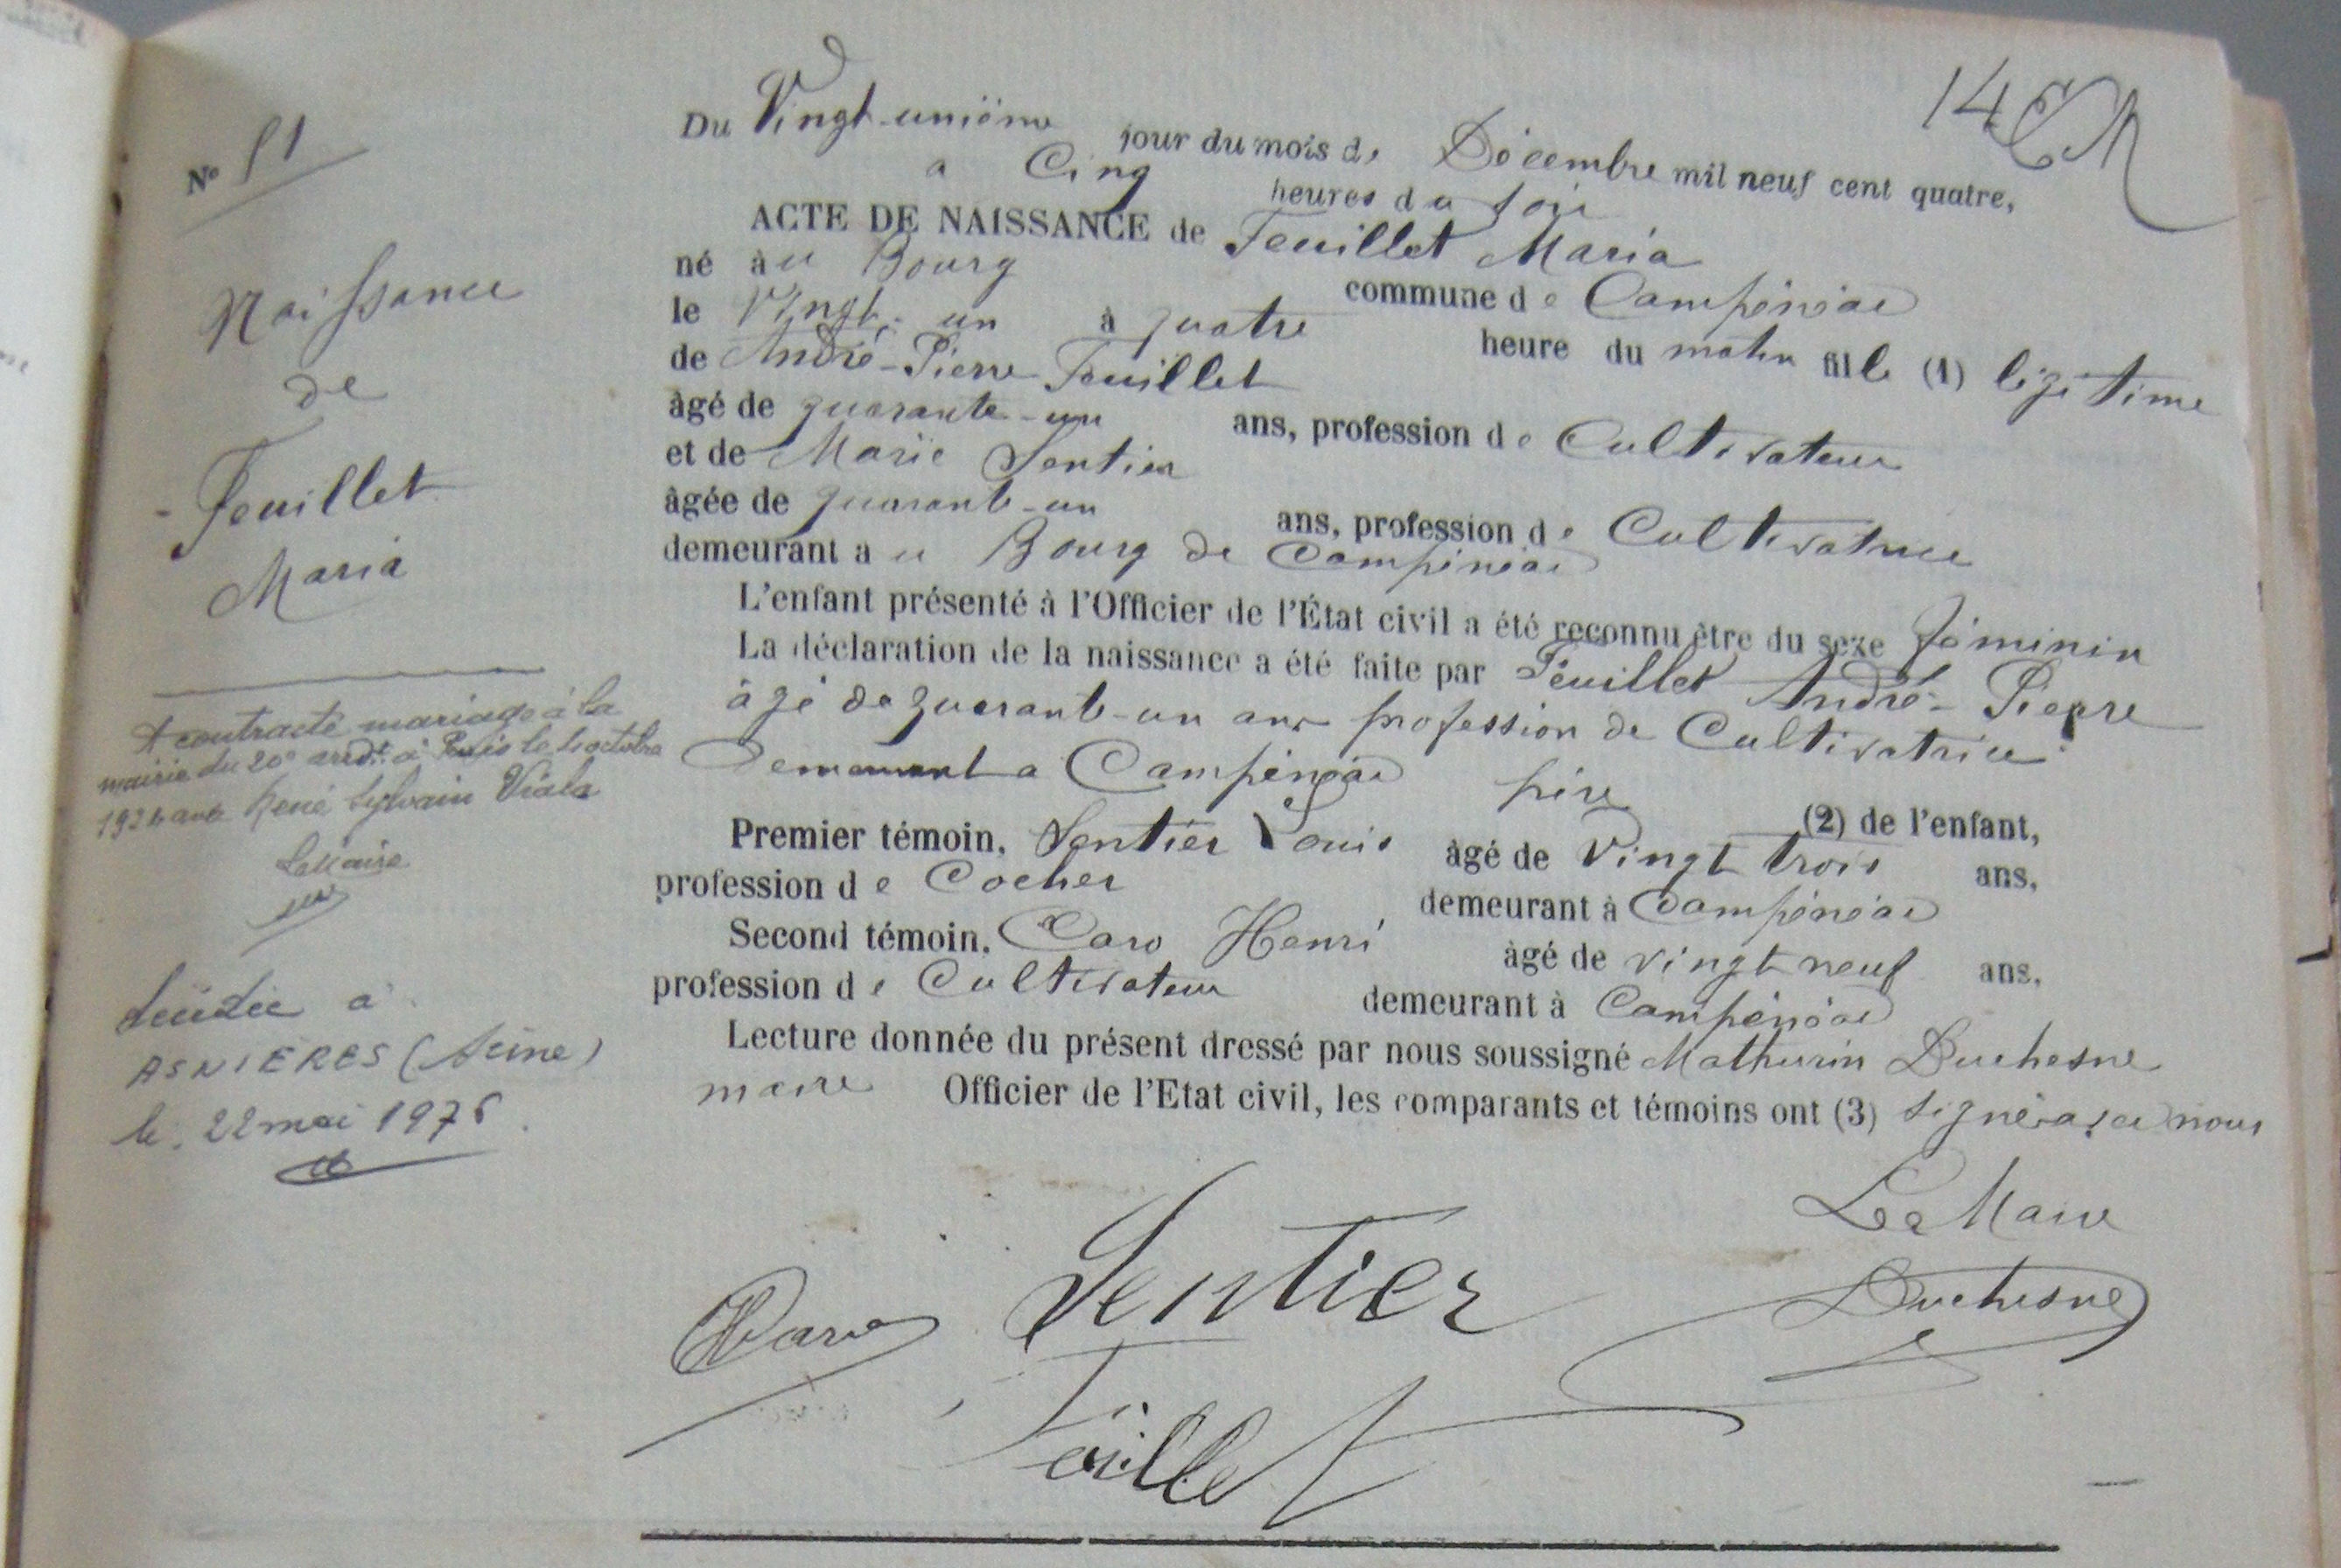 14
Du Vingt-unième jour du mois de Décembre mil neuf cent quatre,
a Cinq heures du soir
ACTE DE NAISSANCE de Feuillet Maria
né au Bourg commune de Campénéac
le Vingt-un à quatre heure du matin fille (1) légitime
de André-Pierre Feuillet
âgé de quarante-un ans, profession de Cultivateur
et de Marie Sentier
âgée de quarante-un ans, profession de Cultivatrice
demeurant au Bourg de Campénéac
L'enfant présenté à l'Officier de l'État civil a été reconnu être du sexe féminin
La déclaration de la naissance a été faite par Feuillet André-Pierre
âgé de quarante-un ans profession de Cultivatrice
demeurant a Campénéac père (2) de l'enfant,
Premier témoin, Sentier Louis âgé de Vingt trois ans,
profession de Cocher demeurant à Campénéac
Second témoin, Caro Henri âgé de vingt neuf ans,
profession de Cultivateur demeurant à Campénéac
Lecture donnée du présent dressé par nous soussigné Mathurin Duchesne
maire Officier de l'Etat civil, les comparants et témoins ont (3) signé avec nous
Le Maire
Duchesne
Sentier
HCaro
Feuillet
No 51
Naissance
de
Feuillet
Maria
A contracté mariage à la
mairie du 20e arrdt à Paris le octobre
192 avec René Sylvain Viala
Le Maire
décédée à
ASNIERES (Seine)
le 22 mai 1976